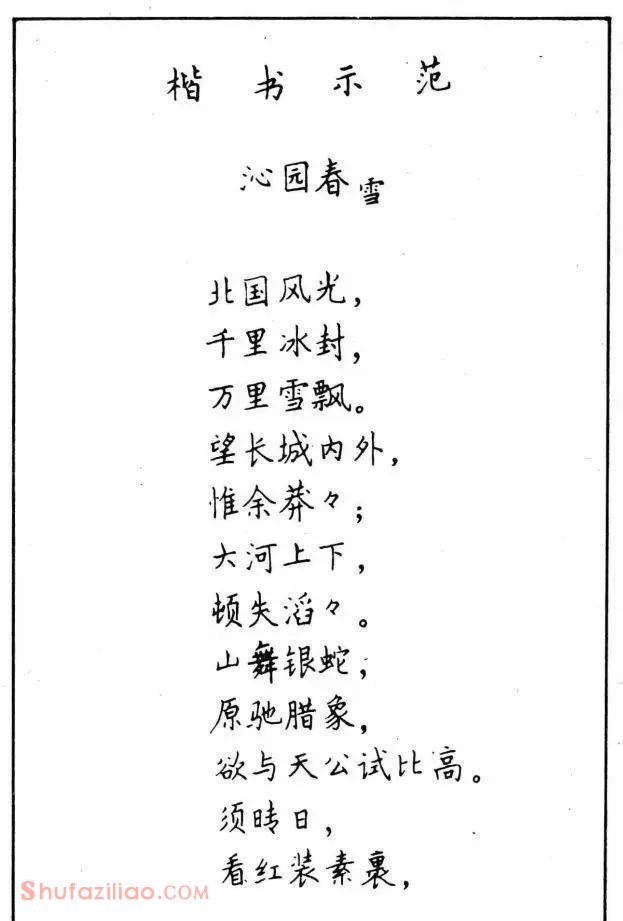 楷书示范
沁园春 雪
北国风光，
千里冰封，
万里雪飘。
望长城内外，
惟余莽々；
大河上下，
顿失滔々。
山舞银蛇，
原驰腊象，
欲与天公试比高。
须晴日，
看红装素裹，
Shufaziliao.COM